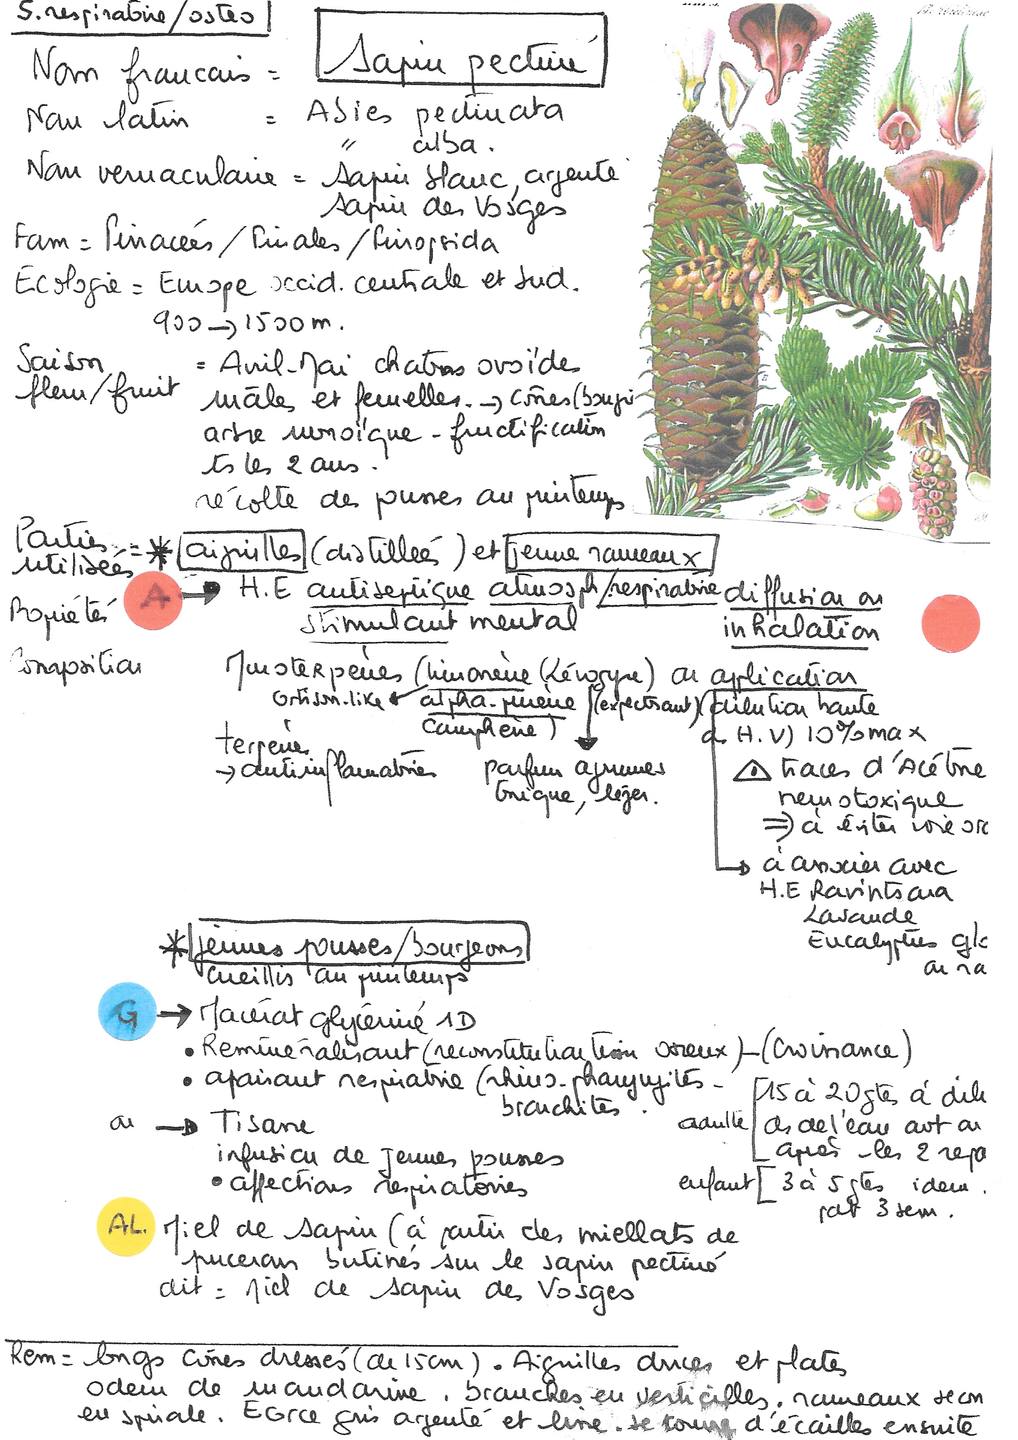 S. respiratoire/ostéo
Sapin pectiné
Nom francais =
Nom latin = Abies pectinata
" alba.
Nom vernaculaire = Sapin blanc, argenté
Sapin des Vosges
Fam = Pinacées / Pinales / Pinopsida
Ecologie = Europe occid. centrale et sud.
900 → 1500 m.
Saison fleur/fruit = Avril-Mai chatons ovoïdes
mâles et femelles. → cônes (bougi
arbre monoïque - fructification
ts les 2 ans.
récolte des pousses au printemps
Parties utilisées = * aiguilles (distillée) et jeune rameaux
Propriété A → H.E antiseptique atmosph/respiratoire diffusion ou
stimulant mental inhalation
Composition Monoterpènes (limonène (Lévogyre) ou application
cortison-like ← alpha-pinène (expectorant) (dilution haute
camphène) ds H.V) 10% max
terpènes
→ antiinflammatoires parfum agrumes
tonique, léger.
⚠ traces d'Acétone
neurotoxique
⇒ à éviter voie or
→ à associer avec
H.E Ravintsara
Lavande
Eucalyptus glo
ou ra
* jeunes pousses/bourgeons
cueillis au printemps
G → Macérat glycériné 1D
• Reminéralisant (reconstitution tissu osseux) - (Croissance)
• apaisant respiratoire (rhino-pharyngites -
bronchites.
adulte [15 à 20 gtes à dilu
ds de l'eau avt ou
après les 2 repa
enfant [3 à 5 gtes idem.
pdt 3 sem.
ou → Tisane
infusion de jeunes pousses
• affections respiratoires
AL. Miel de sapin (à partir des miellats de
puceron butinés sur le sapin pectiné
dit = Miel de sapin des Vosges
Rem = longs cônes dressés (de 15cm). Aiguilles douces et plates
odeur de mandarine. branches en verticilles. rameaux secon
en spirale. Ecorce gris argenté et lisse. se couvre d'écailles ensuite